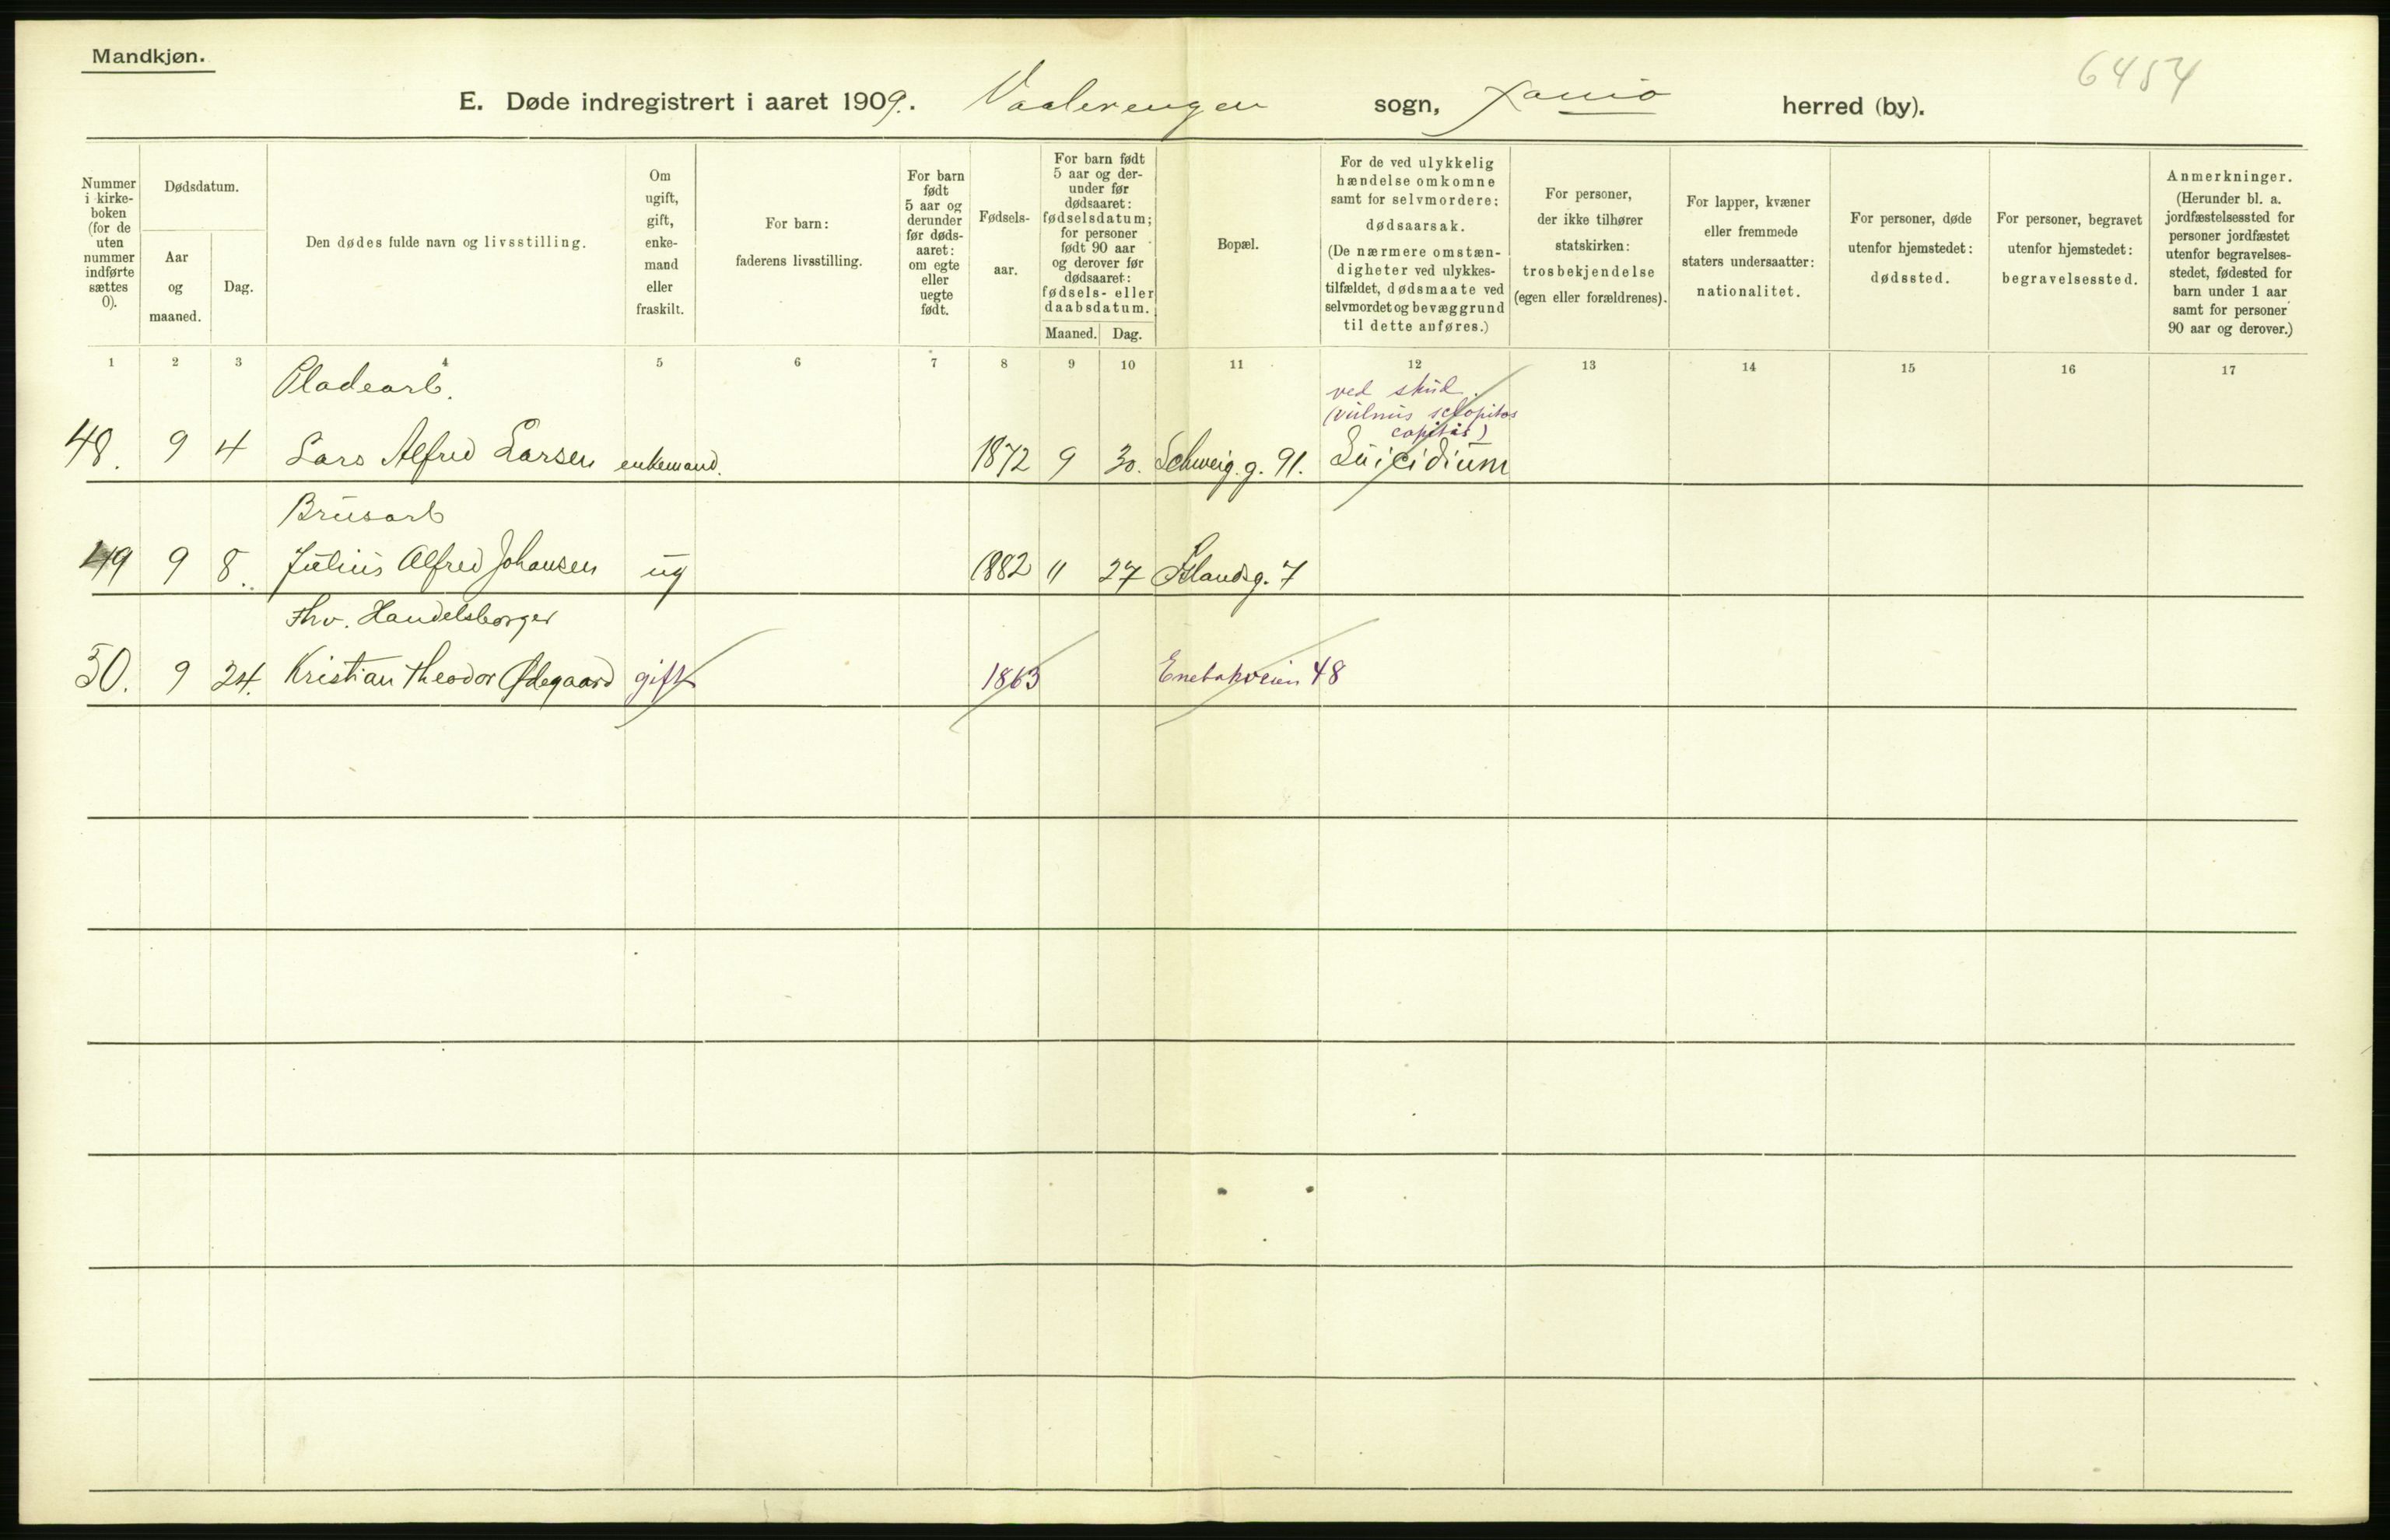 Mandkjøn.
6454
E. Døde indregistrert i aaret 1909. Vaalerengen sogn, Xania herred (by).
Nummer i kirke-boken (for de uten nummer indførte sættes 0).
Dødsdatum.
Aar og maaned.
Dag.
Den dødes fulde navn og livsstilling.
Om ugift, gift, enke-mand eller fraskilt.
For barn: faderens livsstilling.
For barn født 5 aar og derunder før døds-aaret: om egte eller uegte født.
Fødsels-aar.
For barn født 5 aar og der-under før dødsaaret: fødselsdatum; for personer født 90 aar og derover før dødsaaret: fødsels- eller daabsdatum.
Maaned. Dag.
Bopæl.
For de ved ulykkelig hændelse omkomne samt for selvmordere: dødsaarsak. (De nærmere omstæn-digheter ved ulykkes-tilfældet, dødsmaate ved selvmordet og bevæggrund til dette anføres.)
For personer, der ikke tilhører statskirken: trosbekjendelse (egen eller forældrenes).
For lapper, kvæner eller fremmede staters undersaatter: nationalitet.
For personer, døde utenfor hjemstedet: dødssted.
For personer, begravet utenfor hjemstedet: begravelsessted.
Anmerkninger. (Herunder bl. a. jordfæstelsessted for personer jordfæstet utenfor begravelses-stedet, fødested for barn under 1 aar samt for personer 90 aar og derover.)
1 2 3 4 5 6 7 8 9 10 11 12 13 14 15 16 17
Pladearb.
ved skud.
(vulnus sclopitos
capitis)
48. 9 4 Lars Alfred Larsen enkemand. 1872 9 30. Schweig.g. 91. Suicidium
Brusarb
49 9 8. Julius Alfred Johansen ug 1882 11 27 Islandsg. 7
Fhv. Handelsborger
50. 9 24. Kristian Theodor Ødegaard gift 1863 Enebakveien 48